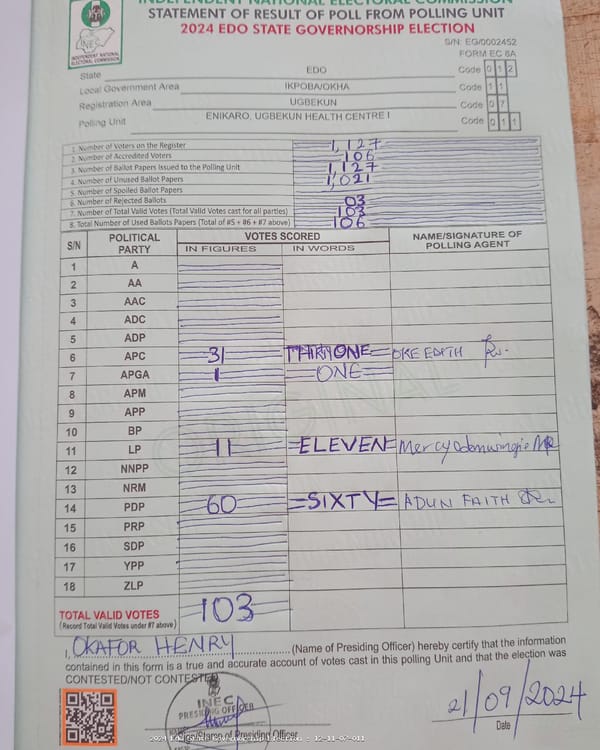 INDEPENDENT NATIONAL ELECTORAL COMMISSION
STATEMENT OF RESULT OF POLL FROM POLLING UNIT
2024 EDO STATE GOVERNORSHIP ELECTION
INEC
INDEPENDENT NATIONAL ELECTORAL COMMISSION
S/N: EG/0002452
FORM EC 8A
State EDO Code 0 1 2
Local Government Area IKPOBA/OKHA Code 1 1
Registration Area UGBEKUN Code 0 7
Polling Unit ENIKARO, UGBEKUN HEALTH CENTRE I Code 0 1 1
1. Number of Voters on the Register 1,127
2. Number of Accredited Voters 106
3. Number of Ballot Papers Issued to the Polling Unit 1,127
4. Number of Unused Ballot Papers 1,021
5. Number of Spoiled Ballot Papers
6. Number of Rejected Ballots 03
7. Number of Total Valid Votes (Total Valid Votes cast for all parties) 103
8. Total Number of Used Ballots Papers (Total of #5 + #6 + #7 above) 106
S/N POLITICAL PARTY VOTES SCORED NAME/SIGNATURE OF POLLING AGENT
IN FIGURES IN WORDS
1 A
2 AA
3 AAC
4 ADC
5 ADP
6 APC 31 THIRTYONE OKE EDITH
7 APGA 1 ONE
8 APM
9 APP
10 BP
11 LP 11 =ELEVEN= Mercy
12 NNPP
13 NRM
14 PDP 60 =SIXTY= ADUN FAITH
15 PRP
16 SDP
17 YPP
18 ZLP
TOTAL VALID VOTES 103
(Record Total Valid Votes under #7 above)
I, OKAFOR HENRY (Name of Presiding Officer) hereby certify that the information
contained in this form is a true and accurate account of votes cast in this polling Unit and that the election was
CONTESTED/NOT CONTESTED
INEC
PRESIDING OFFICER
21/09/2024
Date
Presiding Officer